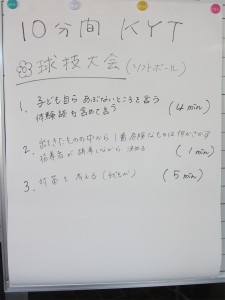 10分間 KYT
球技大会(ソフトボール)
1. 子ども自ら あぶないところを言う
体験談も含めて言う (4min)
2. 出てきたものの中から1番危険なものは何かさがす
指導者が誘導しながら 決める (1min)
3. 対策を考える(子どもが) (5min)